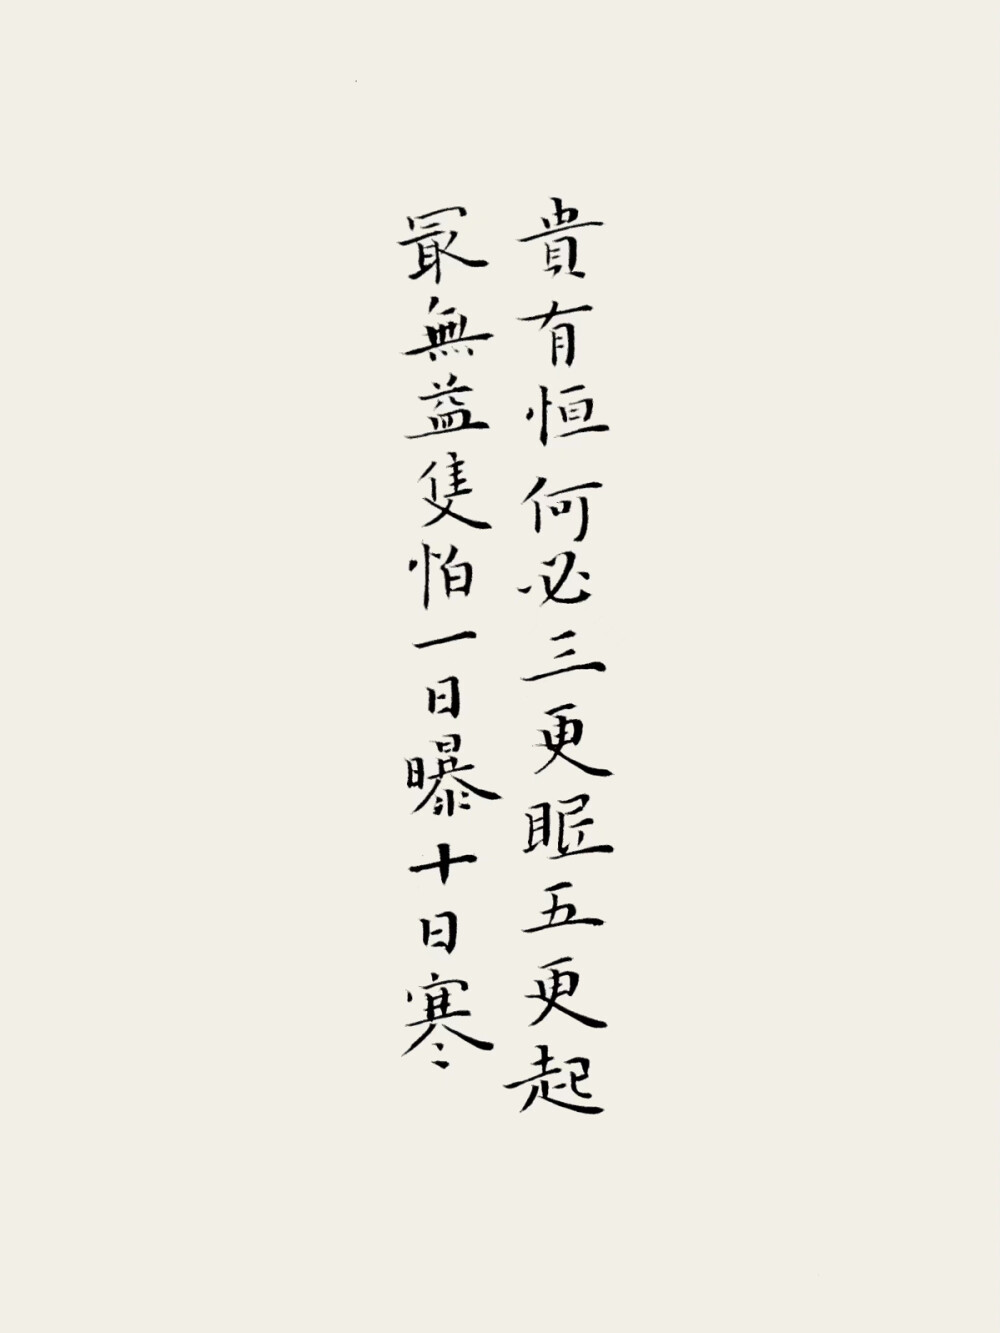 貴有恒何必三更眠五更起
冣無益隻怕一日曝十日寒